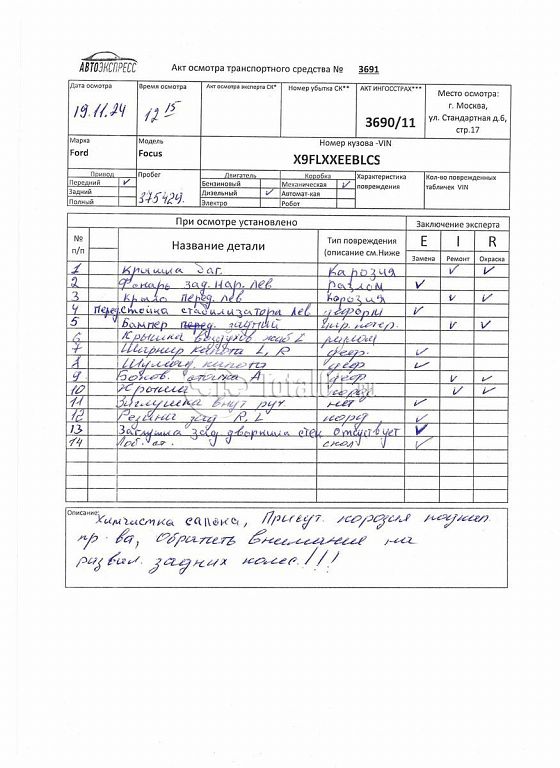 АВТОЭКСПРЕСС
Акт осмотра транспортного средства № 3691
Дата осмотра Время осмотра Акт осмотра эксперта СК* Номер убытка СК** АКТ ИНГОССТРАХ*** Место осмотра:
19.11.24 12 15 3690/11 г. Москва,
ул. Стандартная д.6,
стр.17
Марка Модель Номер кузова -VIN
Ford Focus X9FLXXEEBLCS
Привод Пробег Двигатель Коробка Характеристика повреждения Кол-во поврежденных табличек VIN
Передний ✓ 375429. Бензиновый Механическая ✓
Задний Дизельный ✓ Автомат-кая
Полный Электро Робот
При осмотре установлено Заключение эксперта
№ п/п Название детали Тип повреждения (описание см.Ниже E I R
Замена Ремонт Окраска
1 Крышка баг. Карозия ✓ ✓
2 Фонарь зад. нар. лев разлом ✓
3 Крыло перед. лев корозия ✓ ✓
4 перед Стойка стабилизатора лев деформ ✓
5 Бампер перед. задний ✓ ✓
6 Крышка разлом
7 Шарнир капота L, R деф. ✓
8 Шумоиз. капота деф ✓
9 Боков. стойка А деф ✓ ✓
10 Крыша ✓ ✓
11 Заглушка внут руч нет ✓
12 зад R, L ✓
13 Заглушка зад. дворника стек отсутствует ✓
14 Лоб. ст. скол ✓
Описание:
Химчистка салона, Присут. корозия
пр-ва, Обратить внимание на
развал. задних колес!!!